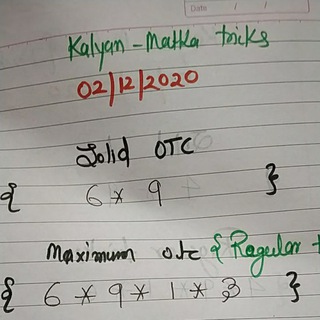 Date / /
Kalyan - Matka tricks
02/12/2020
Solid OTC
{ 6 * 9 }
Maximum otc { Regular
{ 6 * 9 * 1 * 3 }